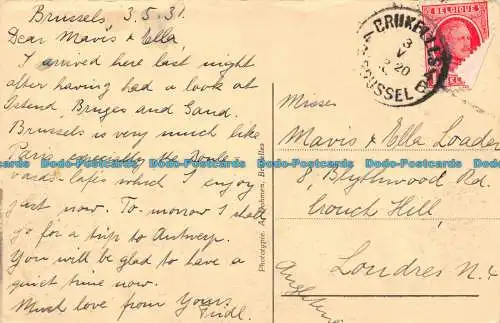 Brussels, 3.5.31.
Dear Mavis & Ella,
I arrived here last night
after having had a look at
Ostend, Bruges and Gand.
Brussels is very much like
Paris especially the Boule-
vard-Cafés which I enjoy
just now. To-morrow I shall
go for a trip to Antwerp.
You will be glad to have a
quiet time now.
Much love from Yours
Fridl.
Phototypie A. Dohmen, Bruxelles
BELGIQUE
BRUXELLES
BRUSSEL
3
V
20
Misses
Mavis & Ella Loader
8, Blythwood Rd.
Crouch Hill,
Londres N.4
Angleterre
Dodo-Postcards Dodo-Postcards Dodo-Postcards Dodo-Postcards